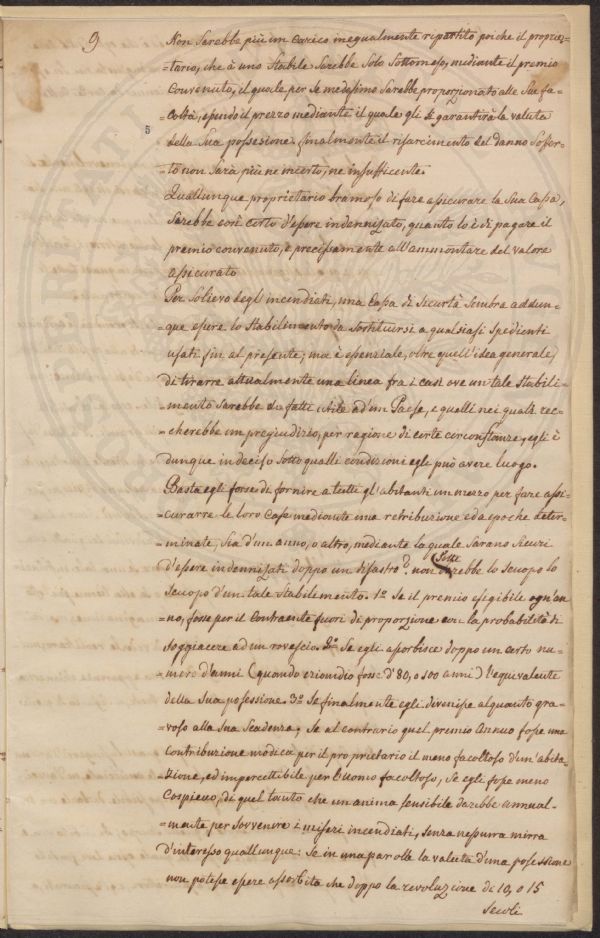 9
Non Sarebbe più un Carico inegualmente ripartito poiche il proprie=
=tario, che à uno Stabile Sarebbe Solo Sottomeso, mediante il premio
Convenuto, il quale per Se medesimo Sarebbe proporzionato alle Sue fa=
=coltà, esendo il prezzo mediante il quale gli Si garantirà la valuta
5
della Sua possesione. finalmente il risarcimento del danno Soffer=
to non Sarà più ne incerto, ne insufficente.
Quallunque proprietario bramoso di fare assicurare la Sua Cassa,
Sarebbe così certo d'esere indennizato, quanto lo è di pagare il
premio convenuto, e precisamente all'ammontare del valore
assicurato
Per Solievo degl'incendiati, una Cassa di Sicurtà Sembra addun=
=que esere lo Stabilimento da Sostituirsi a qualsiasi Spedienti
usati fin al presente; ma è essenziale, oltre quell'idea generale,
di tirarre attualmente una linea fra i casi ove un tale Stabili=
=mento Sarebbe di fatti utile ad'un Paese, e quelli nei quali rec=
=cherebbe un pregiudizio, per ragione di certe circonstanze, egli è
dunque indeciso Sotto qualli condizioni egli può avere luogo.
Basta egli forse di fornire a tutti gl'abitanti un mezzo per fare assi=
=curarre le loro Case mediante una retribuzione ed a epoche deter=
=minate, Sia d'un anno, o altro, mediante la quale Sarano Sicuri
d'esere indennizati doppo un disastro? non Sarebbe lo Scuopo lo
Scuopo d'un tale Stabilemento. 1º Se il premio esigibile ogn'an=
no, fosse per il Contraente fuori di proporzione con la probabilità di
Soggiacere ad un rovescio. 2º Se egli assorbisce doppo un certo nu=
=mero d'anni (quando eziandio fosse d'80, o 100 anni) l'equivalente
della Sua posessione. 3º Se finalmente egli divenisse alquanto gra=
=voso alla Sua Scadenza, Se al contrario quel premio Annuo fosse una
Contribuzione modica per il proprietario il meno facoltoso d'un'abita=
=zione, ed impercettibile per l'uomo facoltoso, Se egli fosse meno
Cospicuo, di quel tanto che un anima Sensibile darebbe annual=
=mente per Sovvenire i miseri incendiati, Senza nessuna mirra
d'interesso quallunque: Se in una parolla la valuta d'una posessione
non potesse esere assorbita che doppo la revoluzione di 10, o 15
Secoli